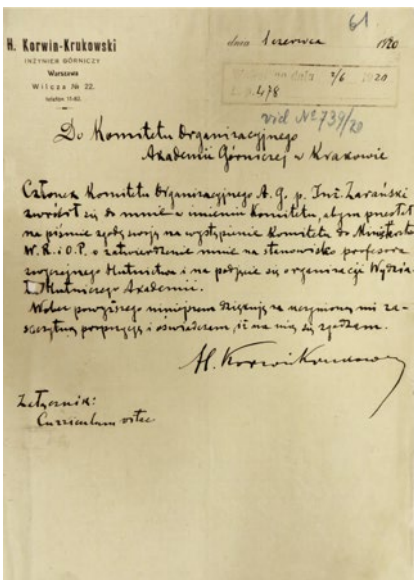 61
H. Korwin-Krukowski
INŻYNIER GÓRNICZY
Warszawa
Wilcza № 22.
telefon
dnia 1 czerwca 1920
dnia 2/6 1920
L. 478
vid № 739/20
Do Komitetu Organizacyjnego
Akademii Górniczej w Krakowie
Członek Komitetu Organizacyjnego A. G. p. Inż. Zarański
zwrócił się do mnie w imieniu Komitetu, abym przesłał
na piśmie zgodę swoją na wystąpienie Komitetu do Ministerstwa
W. R. i O. P. o zatwierdzenie mnie na stanowisko profesora
zwyczajnego Hutnictwa i na podjęcie się organizacji Wydzia-
łu Hutniczego Akademii.
Wobec powyższego niniejszem dziękuję za uczynioną mi za-
szczytną propozycję i oświadczam, iż na nią się zgadzam.
H. Korwin Krukowski
Załącznik:
Curriculum vitae